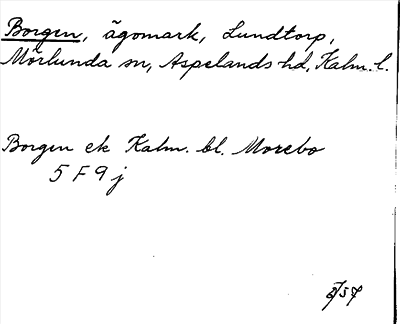 Borgen, ägomark, Lundtorp,
Mörlunda sn, Aspelands hd, Kalm. l.
Borgen ek Kalm. bl. Morebo
5 F 9 j